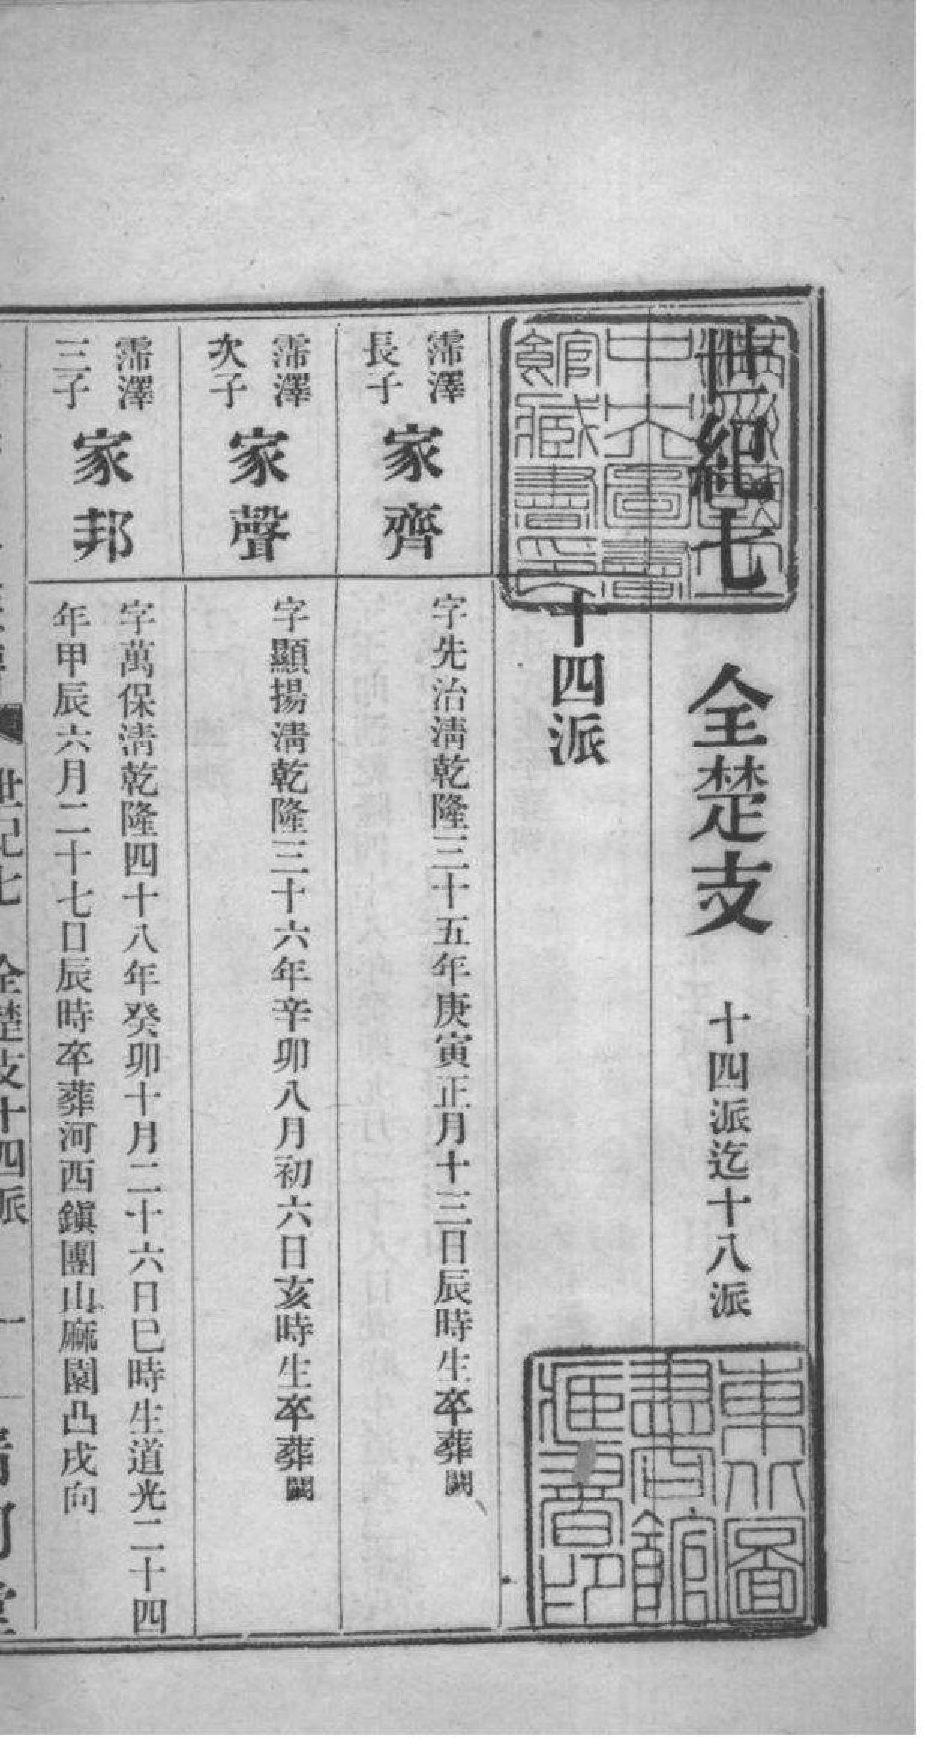 世紀七 全楚支 十四派迄十八派
十四派
霈澤
長子
家齊
字先治淸乾隆三十五年庚寅正月十三日辰時生卒葬闕
霈澤
次子
家聲
字顯揚淸乾隆三十六年辛卯八月初六日亥時生卒葬闕
霈澤
三子
家邦
字萬保淸乾隆四十八年癸卯十月二十六日巳時生道光二十四
年甲辰六月二十七日辰時卒葬河西鎭團山麻園凸戌向
世紀七 全楚支十四派 一 淸河堂